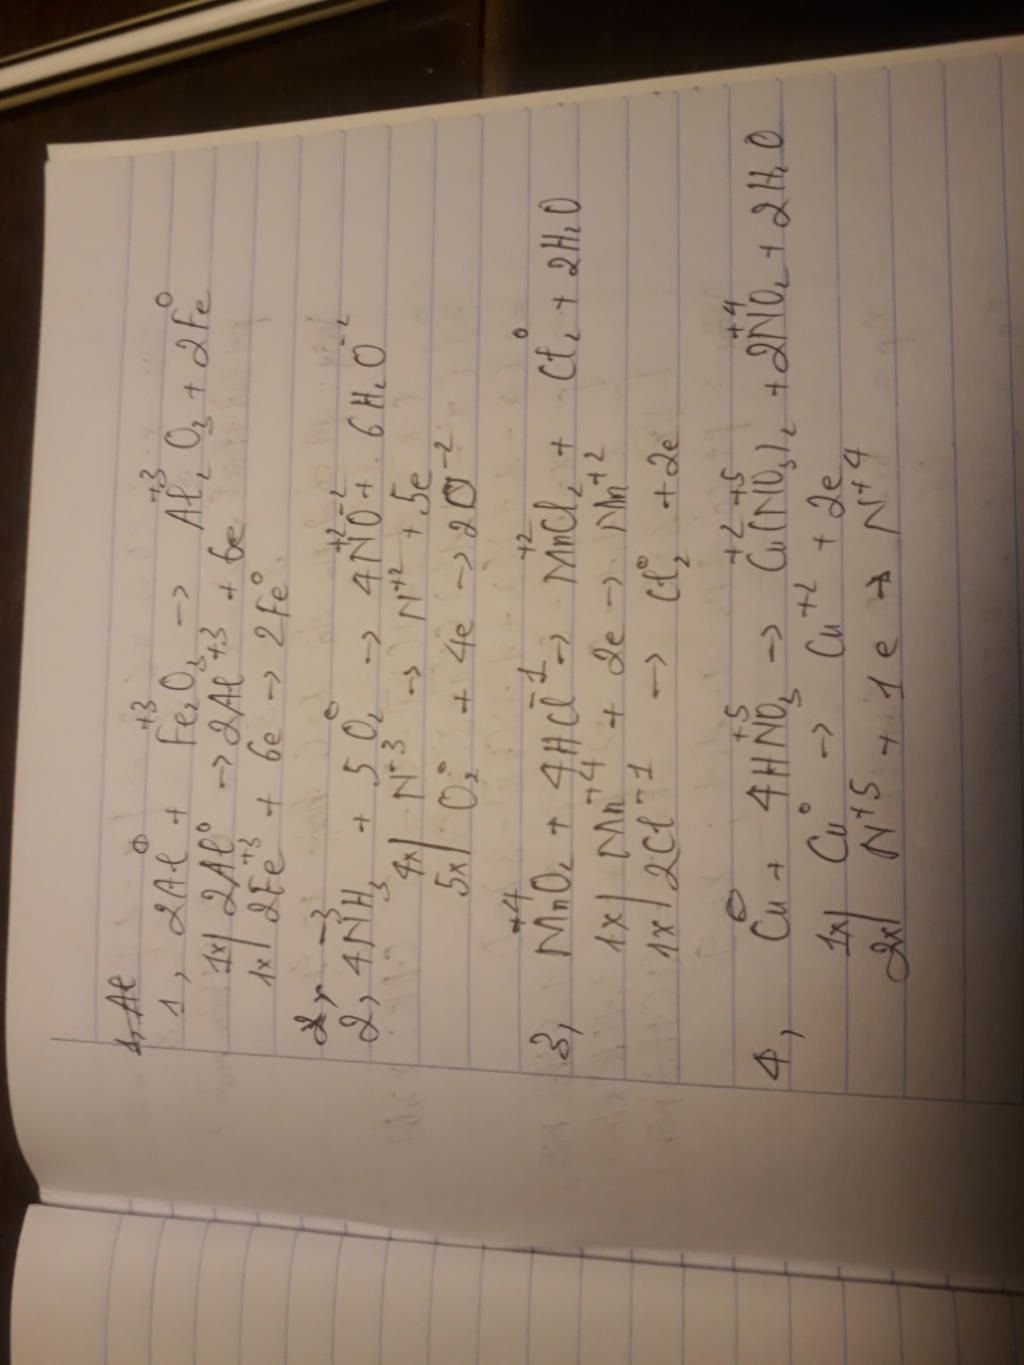 1, Al
1, 2Al⁰ + Fe₂⁺³O₃ → Al₂⁺³O₃ + 2Fe⁰
1x| 2Al⁰ → 2Al⁺³ + 6e
1x| 2Fe⁺³ + 6e → 2Fe⁰
2,
2, 4N⁻³H₃ + 5O₂⁰ → 4N⁺²O⁻² + 6H₂O⁻²
4x| N⁻³ → N⁺² + 5e
5x| O₂⁰ + 4e → 2O⁻²
3, Mn⁺⁴O₂ + 4HCl⁻¹ → Mn⁺²Cl₂ + Cl₂⁰ + 2H₂O
1x| Mn⁺⁴ + 2e → Mn⁺²
1x| 2Cl⁻¹ → Cl₂⁰ + 2e
4, Cu⁰ + 4HN⁺⁵O₃ → Cu⁺²(N⁺⁵O₃)₂ + 2N⁺⁴O₂ + 2H₂O
1x| Cu⁰ → Cu⁺² + 2e
2x| N⁺⁵ + 1e → N⁺⁴